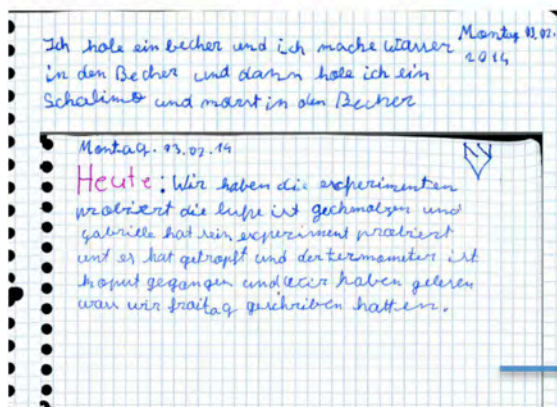 Ich hole ein becher und ich mache wasser
Montag 03.02.
2014
in den Becher und dann hole ich ein
Schalimo und in den Becher
Montag. 03.02.14
Heute: Wir haben die experimenten
probiert die lupe ist gechmolzen und
gabrielle hat sein experiment probiert
unt es hat getropft und der termometer ist
koput gegangen und wir haben gelesen
was wir fraitag geschriben hatten.